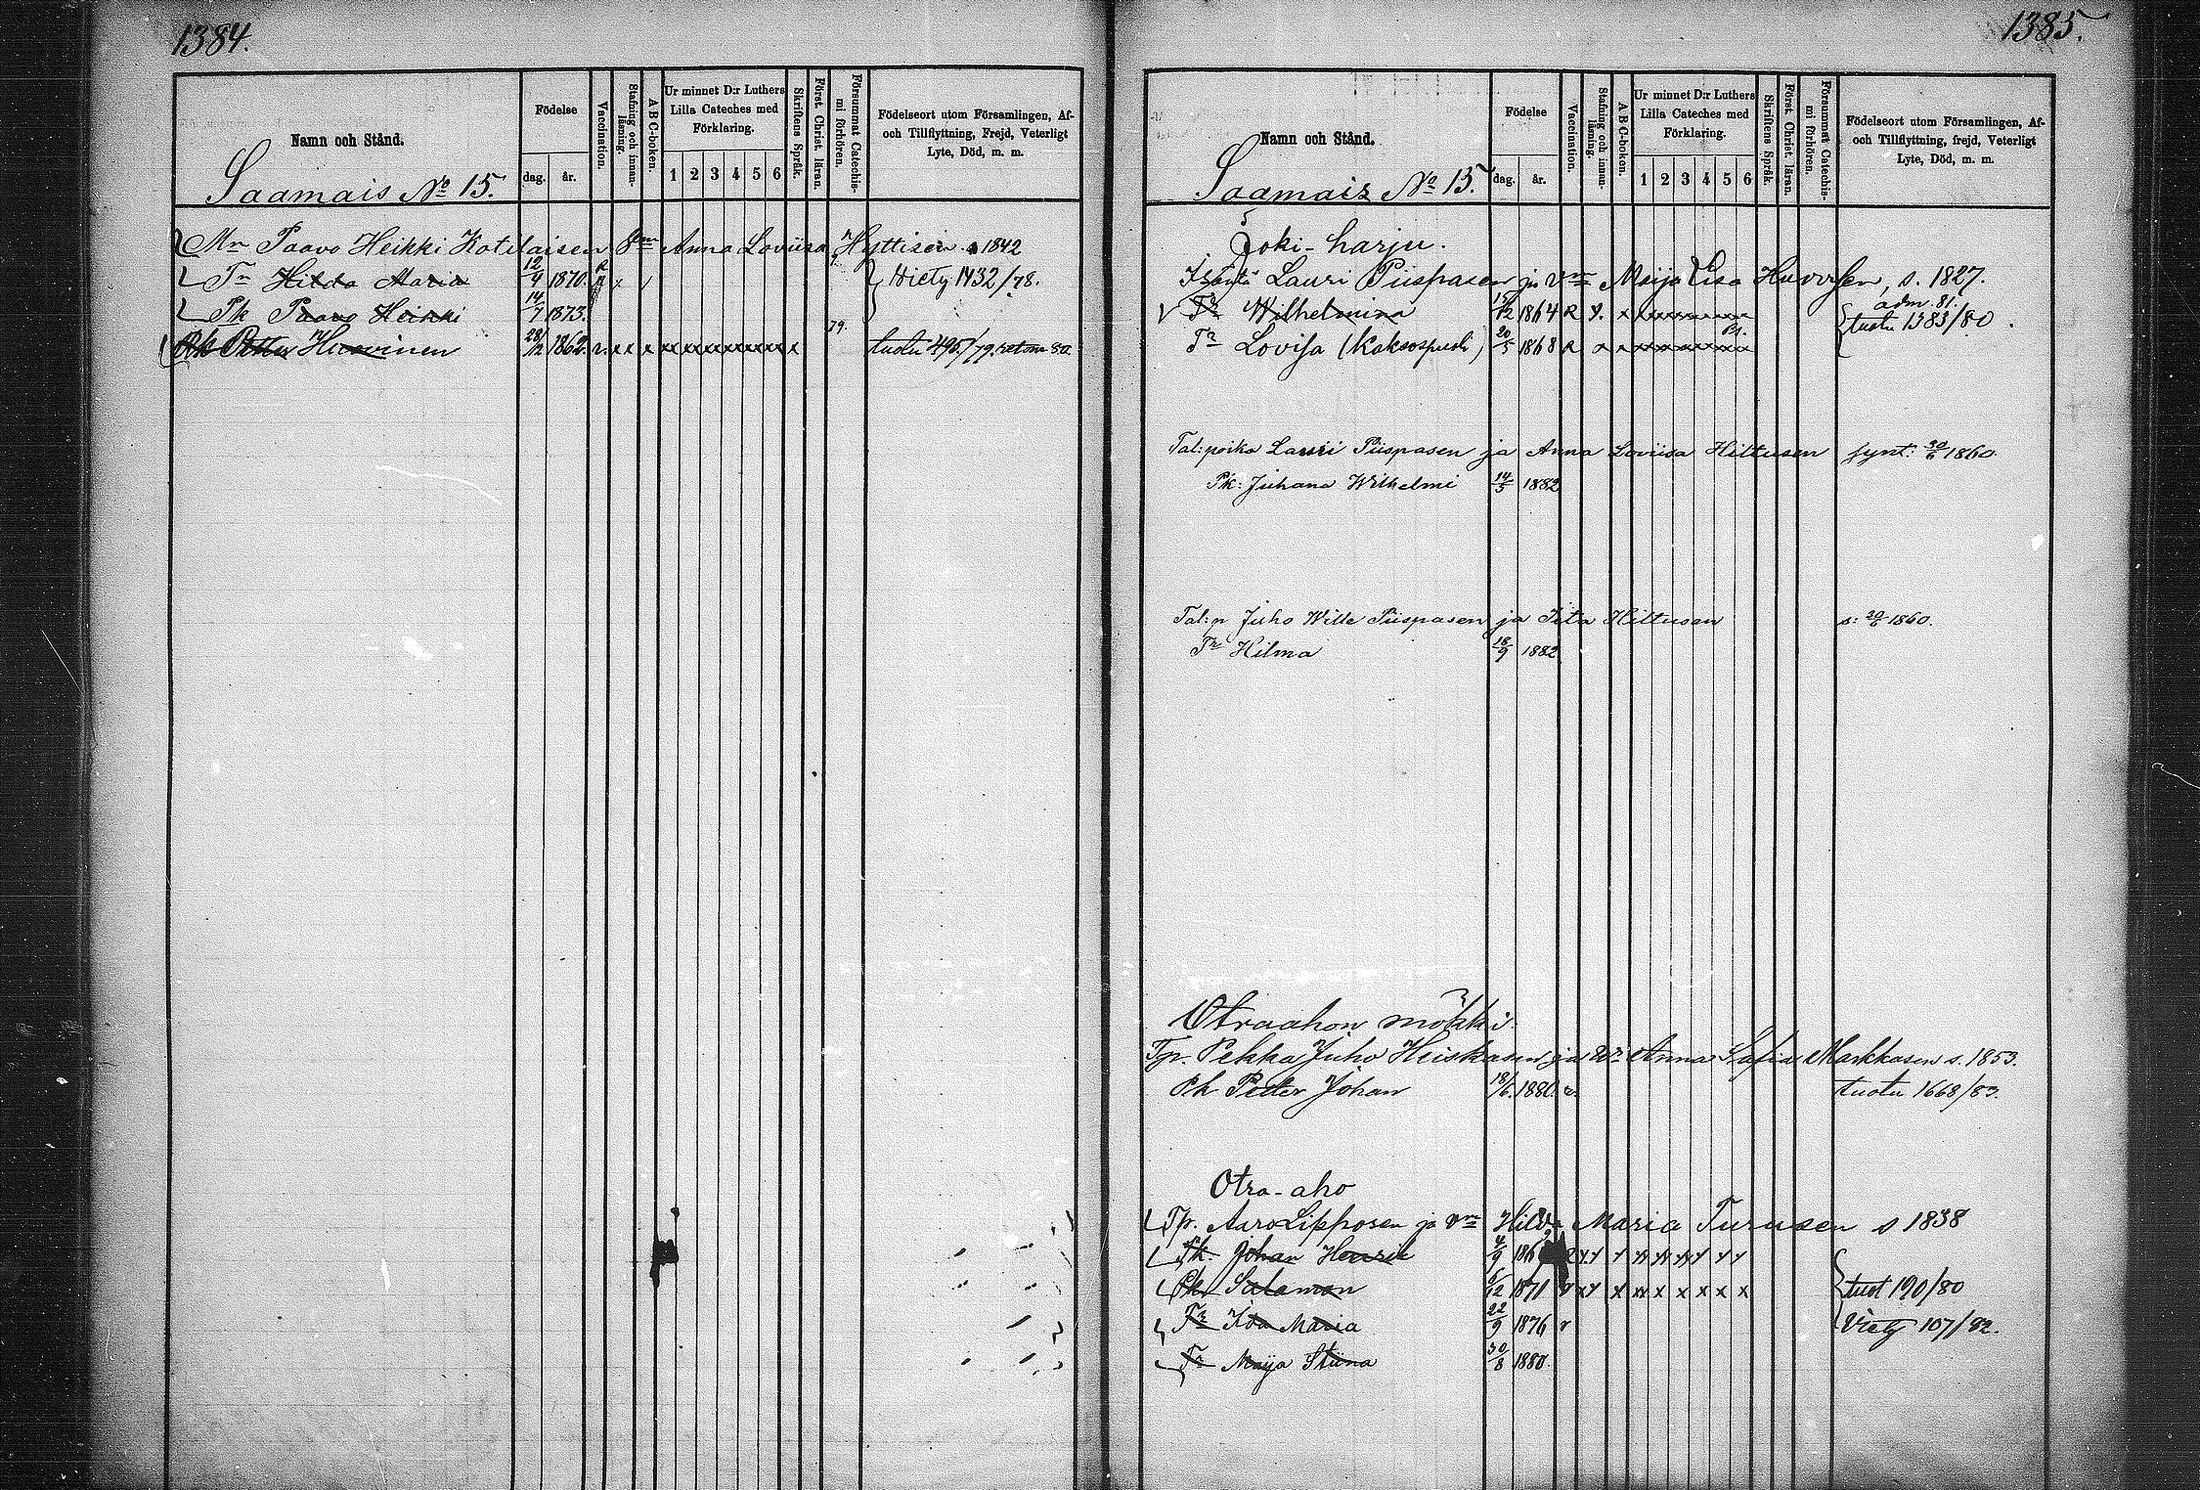 1384.
Namn och Stånd.
Födelse
dag. år.
Vaccination.
Stafning och innan-läsning.
A B C-boken.
Ur minnet D:r Luthers Lilla Cateches med Förklaring.
1 2 3 4 5 6
Skriftens Språk.
Först. Christ. läran.
Försummat Catechis-mi förhören.
Födelseort utom Församlingen, Af- och Tillflyttning, Frejd, Veterligt Lyte, Död, m. m.
Saamais No 15.
Mn Paavo Heikki Kotilaisen Anna Loviisa Hyttisen s 1842
Tr Hilda Maria 12/4 1870. Viety 1432/78.
Pk Paavo Heikki 14/7 1873.
79.
Pk Petter Huovinen 28/12 1862 r. x x x x x x x x x x tuotu 495/79
1385.
Namn och Stånd.
Födelse
dag. år.
Vaccination.
Stafning och innan-läsning.
A B C-boken.
Ur minnet D:r Luthers Lilla Cateches med Förklaring.
1 2 3 4 5 6
Skriftens Språk.
Först. Christ. läran.
Försummat Catechis-mi förhören.
Födelseort utom Församlingen, Af- och Tillflyttning, frejd, Veterligt Lyte, Död, m. m.
Saamais No 15.
Joki-harju.
Lauri Piispasen ja Vmn Maija Lisa s. 1827.
Tr Wilhelmina 15/12 1864 R adm. 81. tuotu 1383/80
Tr Lovisa 20/5 1868 R
Tal:poika Lauri Piispasen ja Anna Loviisa Hiltusen synt: 30/6 1860.
Pk: Juhana Wilhelmi 14/5 1882
Tal:p Juho Wille Piispasen ja Iita Hiltusen s: 30/6 1860.
Tr Hilma 18/9 1882
Otraahon mökki.
Tp. Pekka Juho Heiskasen ja Wn Anna Sofia Markkasen s. 1853.
Pk Petter Johan 18/6. 1880. r. tuotu 1668/83.
Otra-aho
Tp. Aaro Lipposen ja vmn Hilda Maria Turusen s 1838
Pk. Johan Henrik 4/9
Pk Salamon 6/12 1871 tuot 190/80
Tr Ida Maria 22/9 1876 r Viety 107/82.
Tr Maija Stiina 30/8 1880.